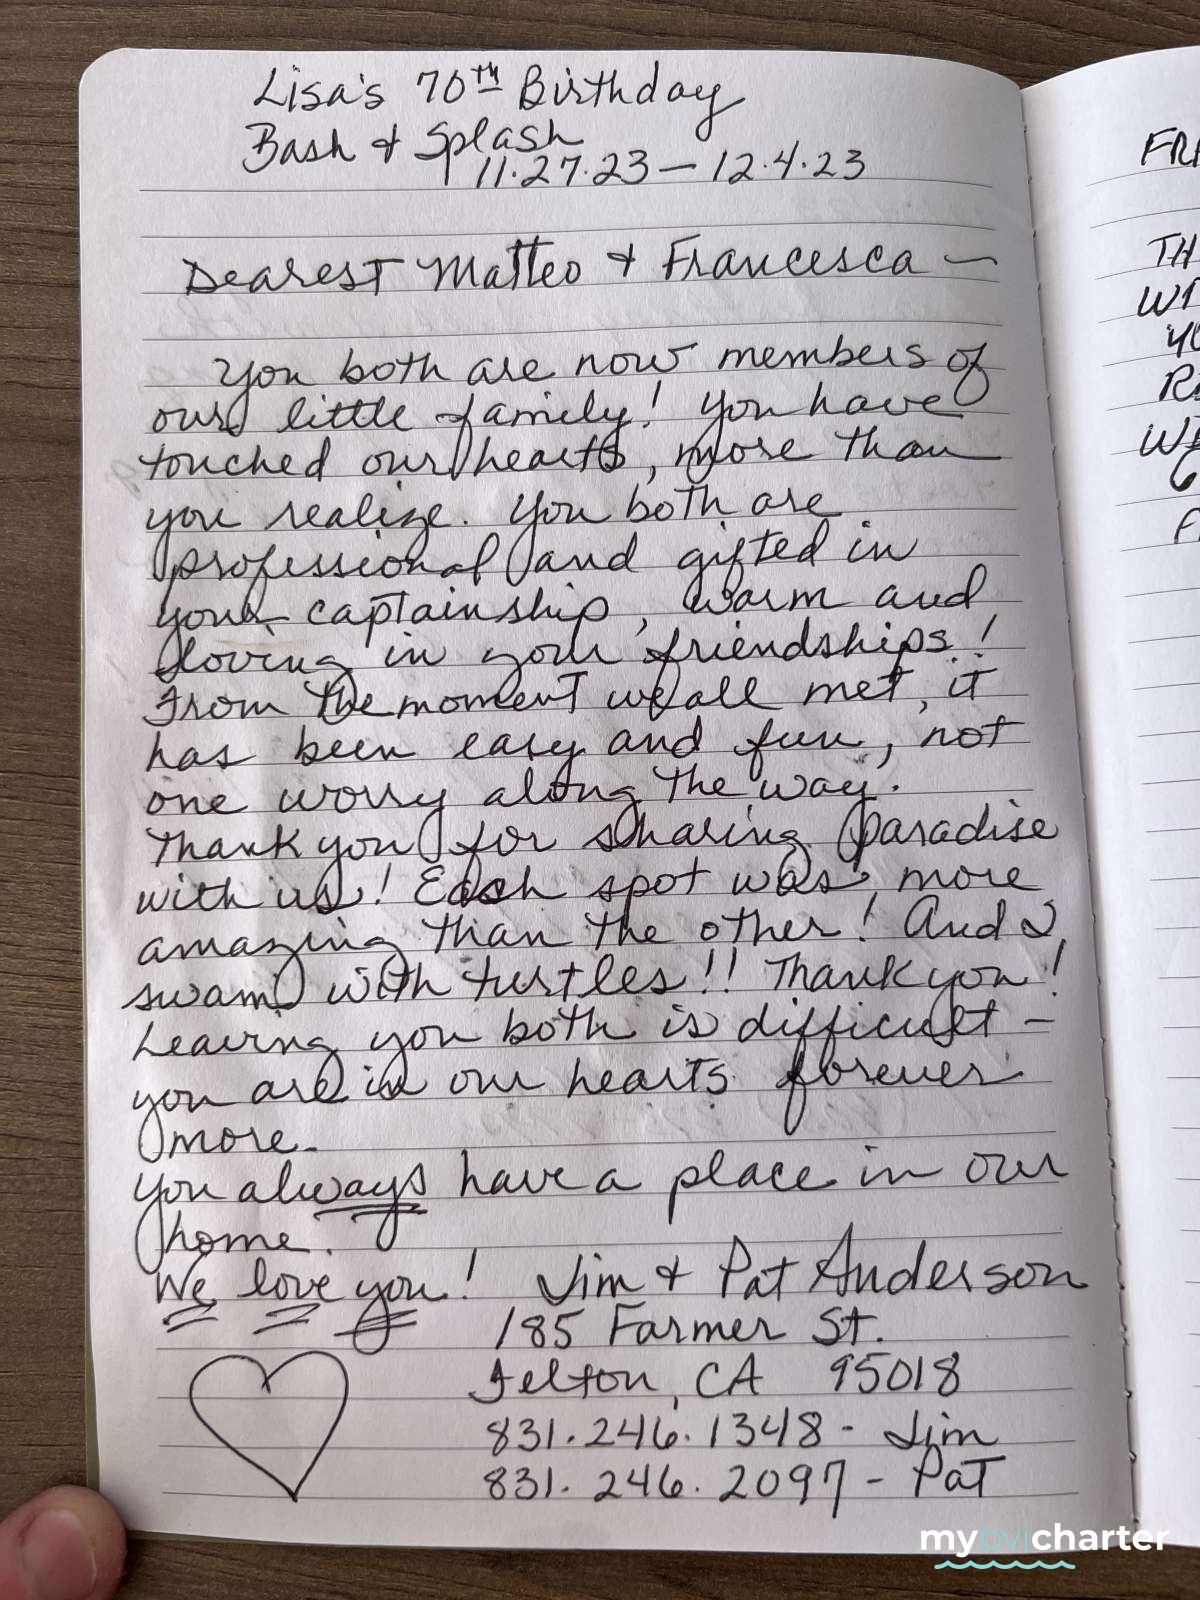 Lisa's 70th Birthday
Bash & Splash
11.27.23 – 12.4.23
Dearest Matteo & Francesca –
You both are now members of
our little family! You have
touched our hearts, more than
you realize. You both are
professional and gifted in
your captainship, warm and
loving in your friendships!
From the moment we all met, it
has been easy and fun, not
one worry along the way.
Thank you for sharing paradise
with us! Each spot was more
amazing than the other! And I
swam with turtles!! Thank you!
Leaving you both is difficult –
you are in our hearts forever
more.
You always have a place in our
home.
We love you! Jim & Pat Anderson
185 Farmer St.
Felton, CA 95018
831.246.1348 - Jim
831.246.2097 - Pat
FRI
TH
WI
YO
RE
WE
6
mybvicharter